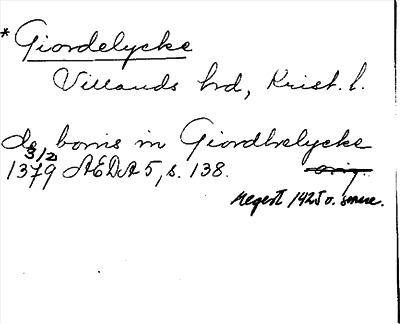 * Giordelycke
Villands hrd, Krist. l.
de bonis in Giordhelycke
3/2
1379 ÆDA 5, s. 138. orig.
Regest 1425 o. senare.